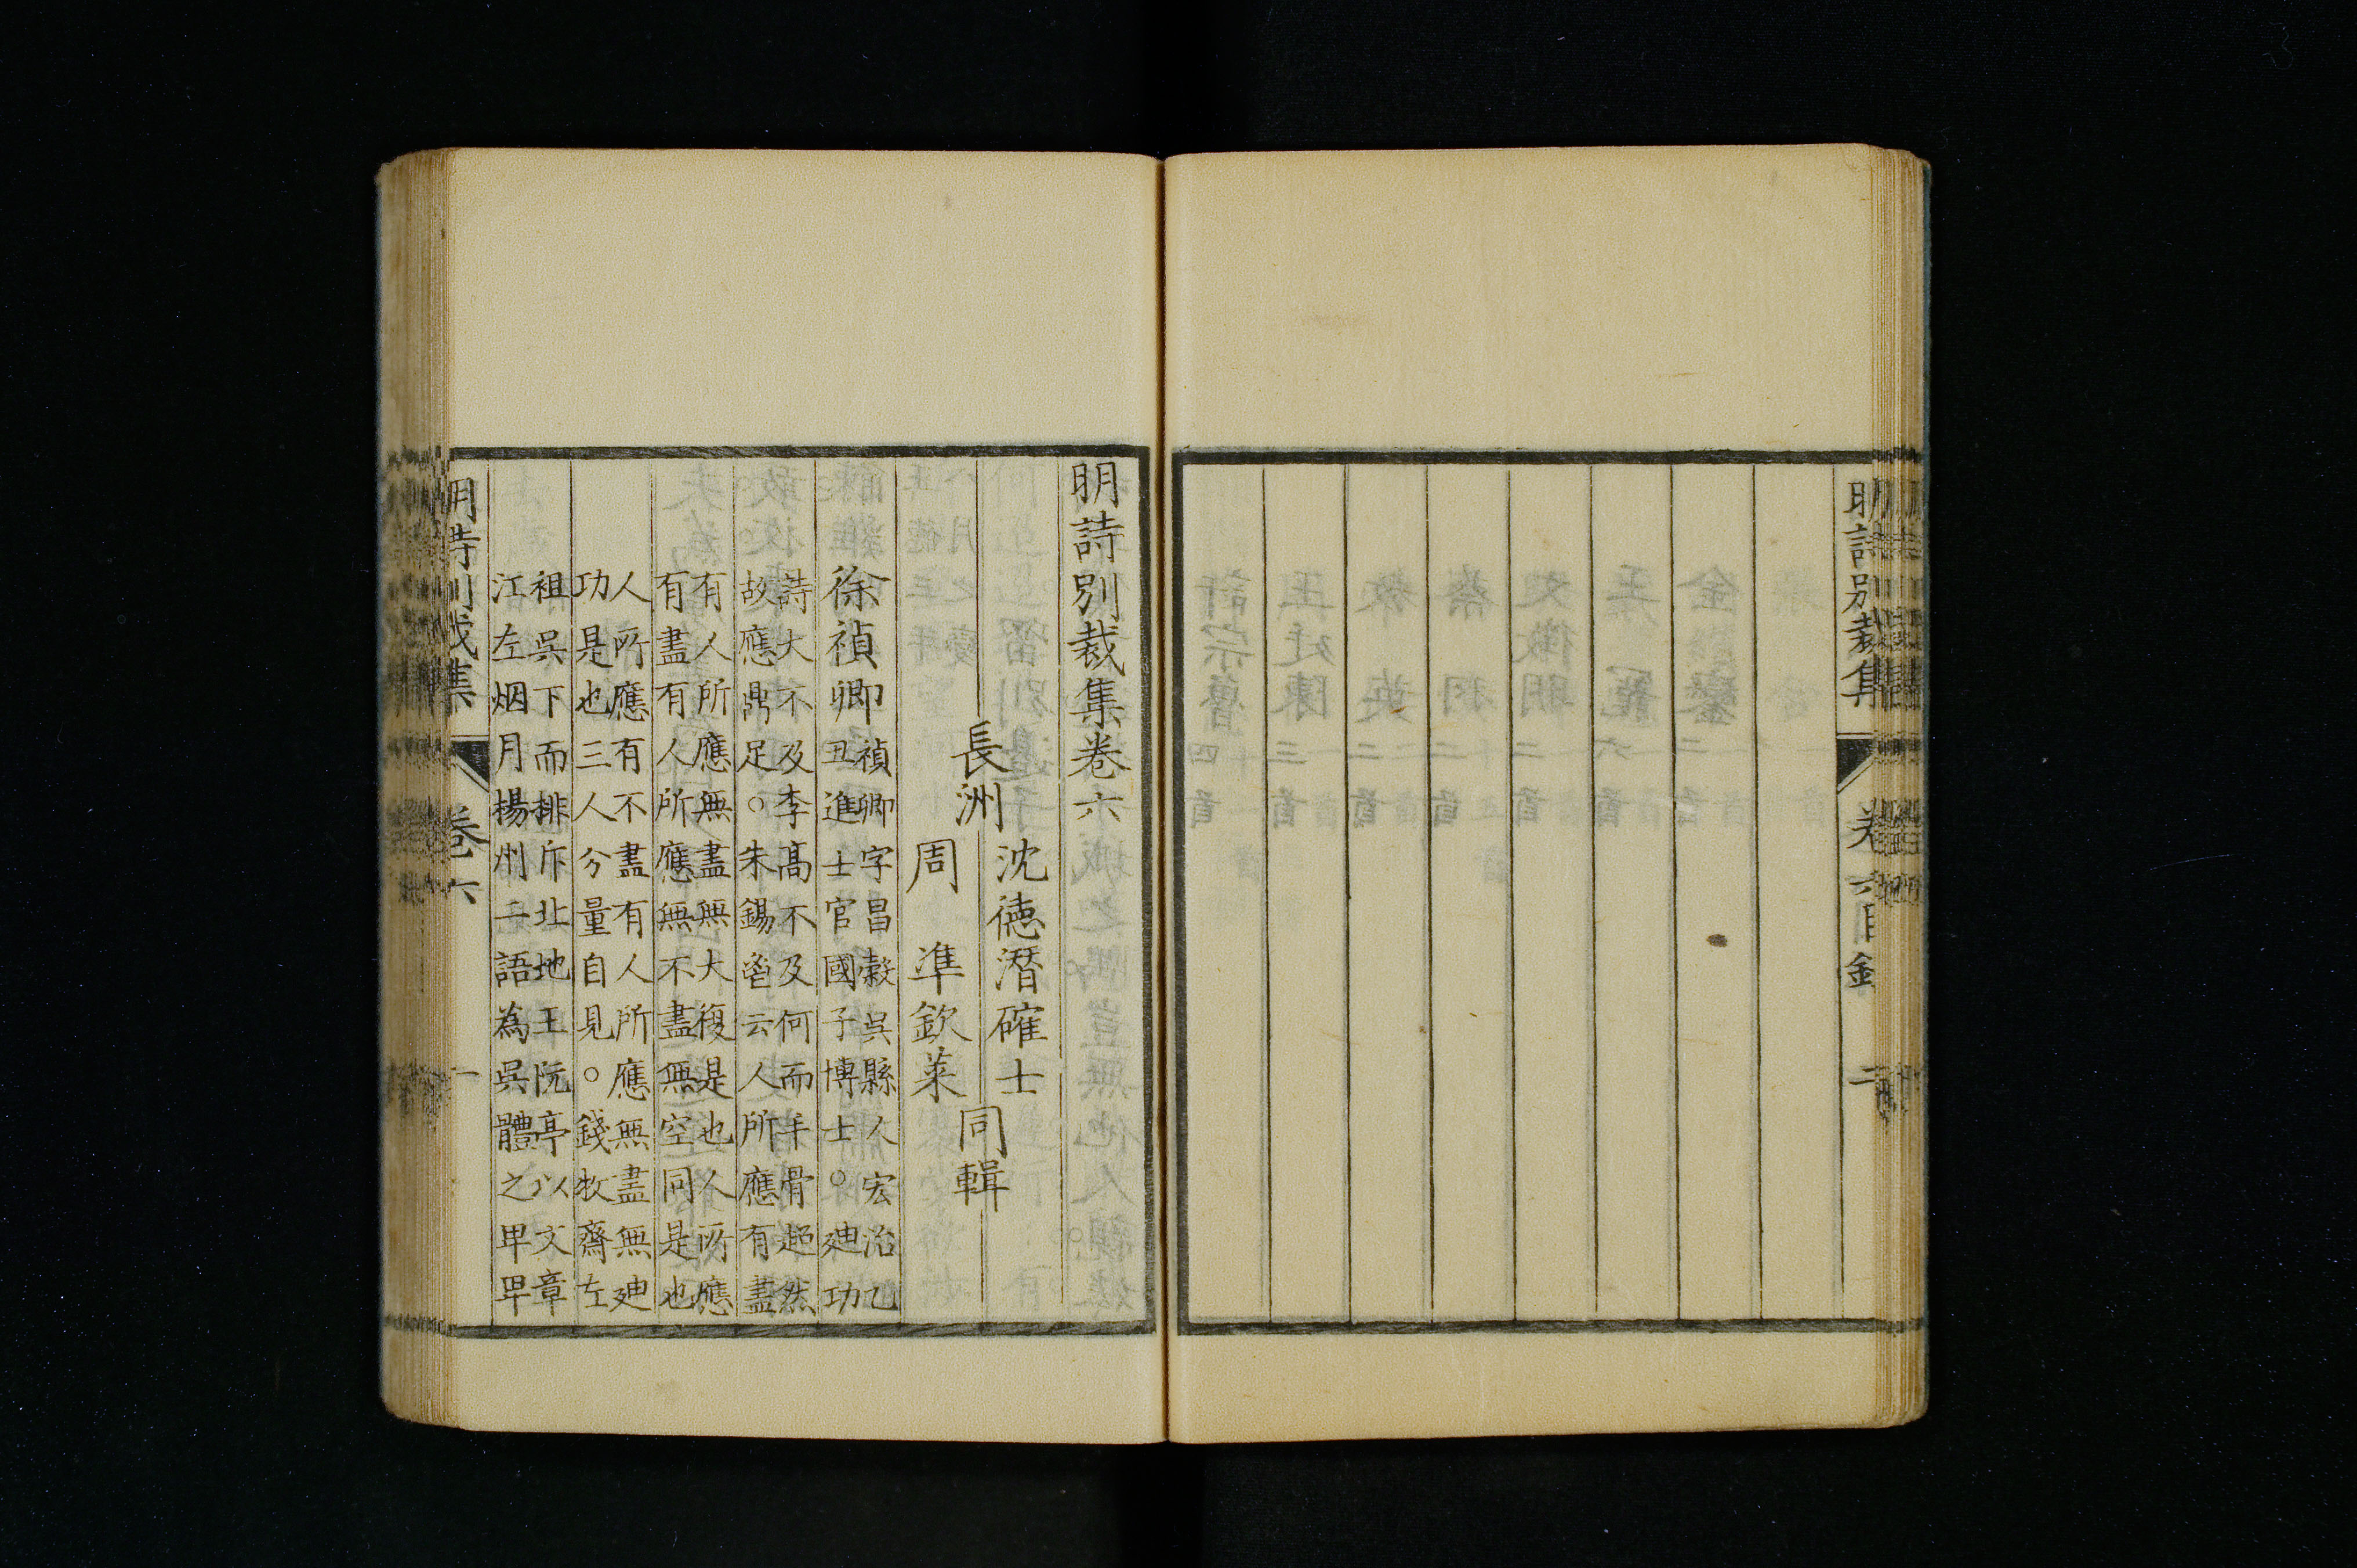 明詩別裁集 卷六目錄 二
明詩別裁集卷六
長洲
沈德潛確士
周準欽萊
同輯
徐禎卿
禎卿字昌穀吳縣人宏治乙
丑進士官國子博士○廸功
詩大不及李高不及何而丰骨超然
故應鼎足○朱錫鬯云人所應有盡
有人所應無盡無大復是也人所應
有盡有人所應無不盡無空同是也
人所應有不盡有人所應無盡無廸
功是也三人分量自見○錢牧齋左
祖吳下而排斥北地王阮亭以文章
江左烟月楊州二語為吳體之卑卑
明詩別裁集 卷六 一